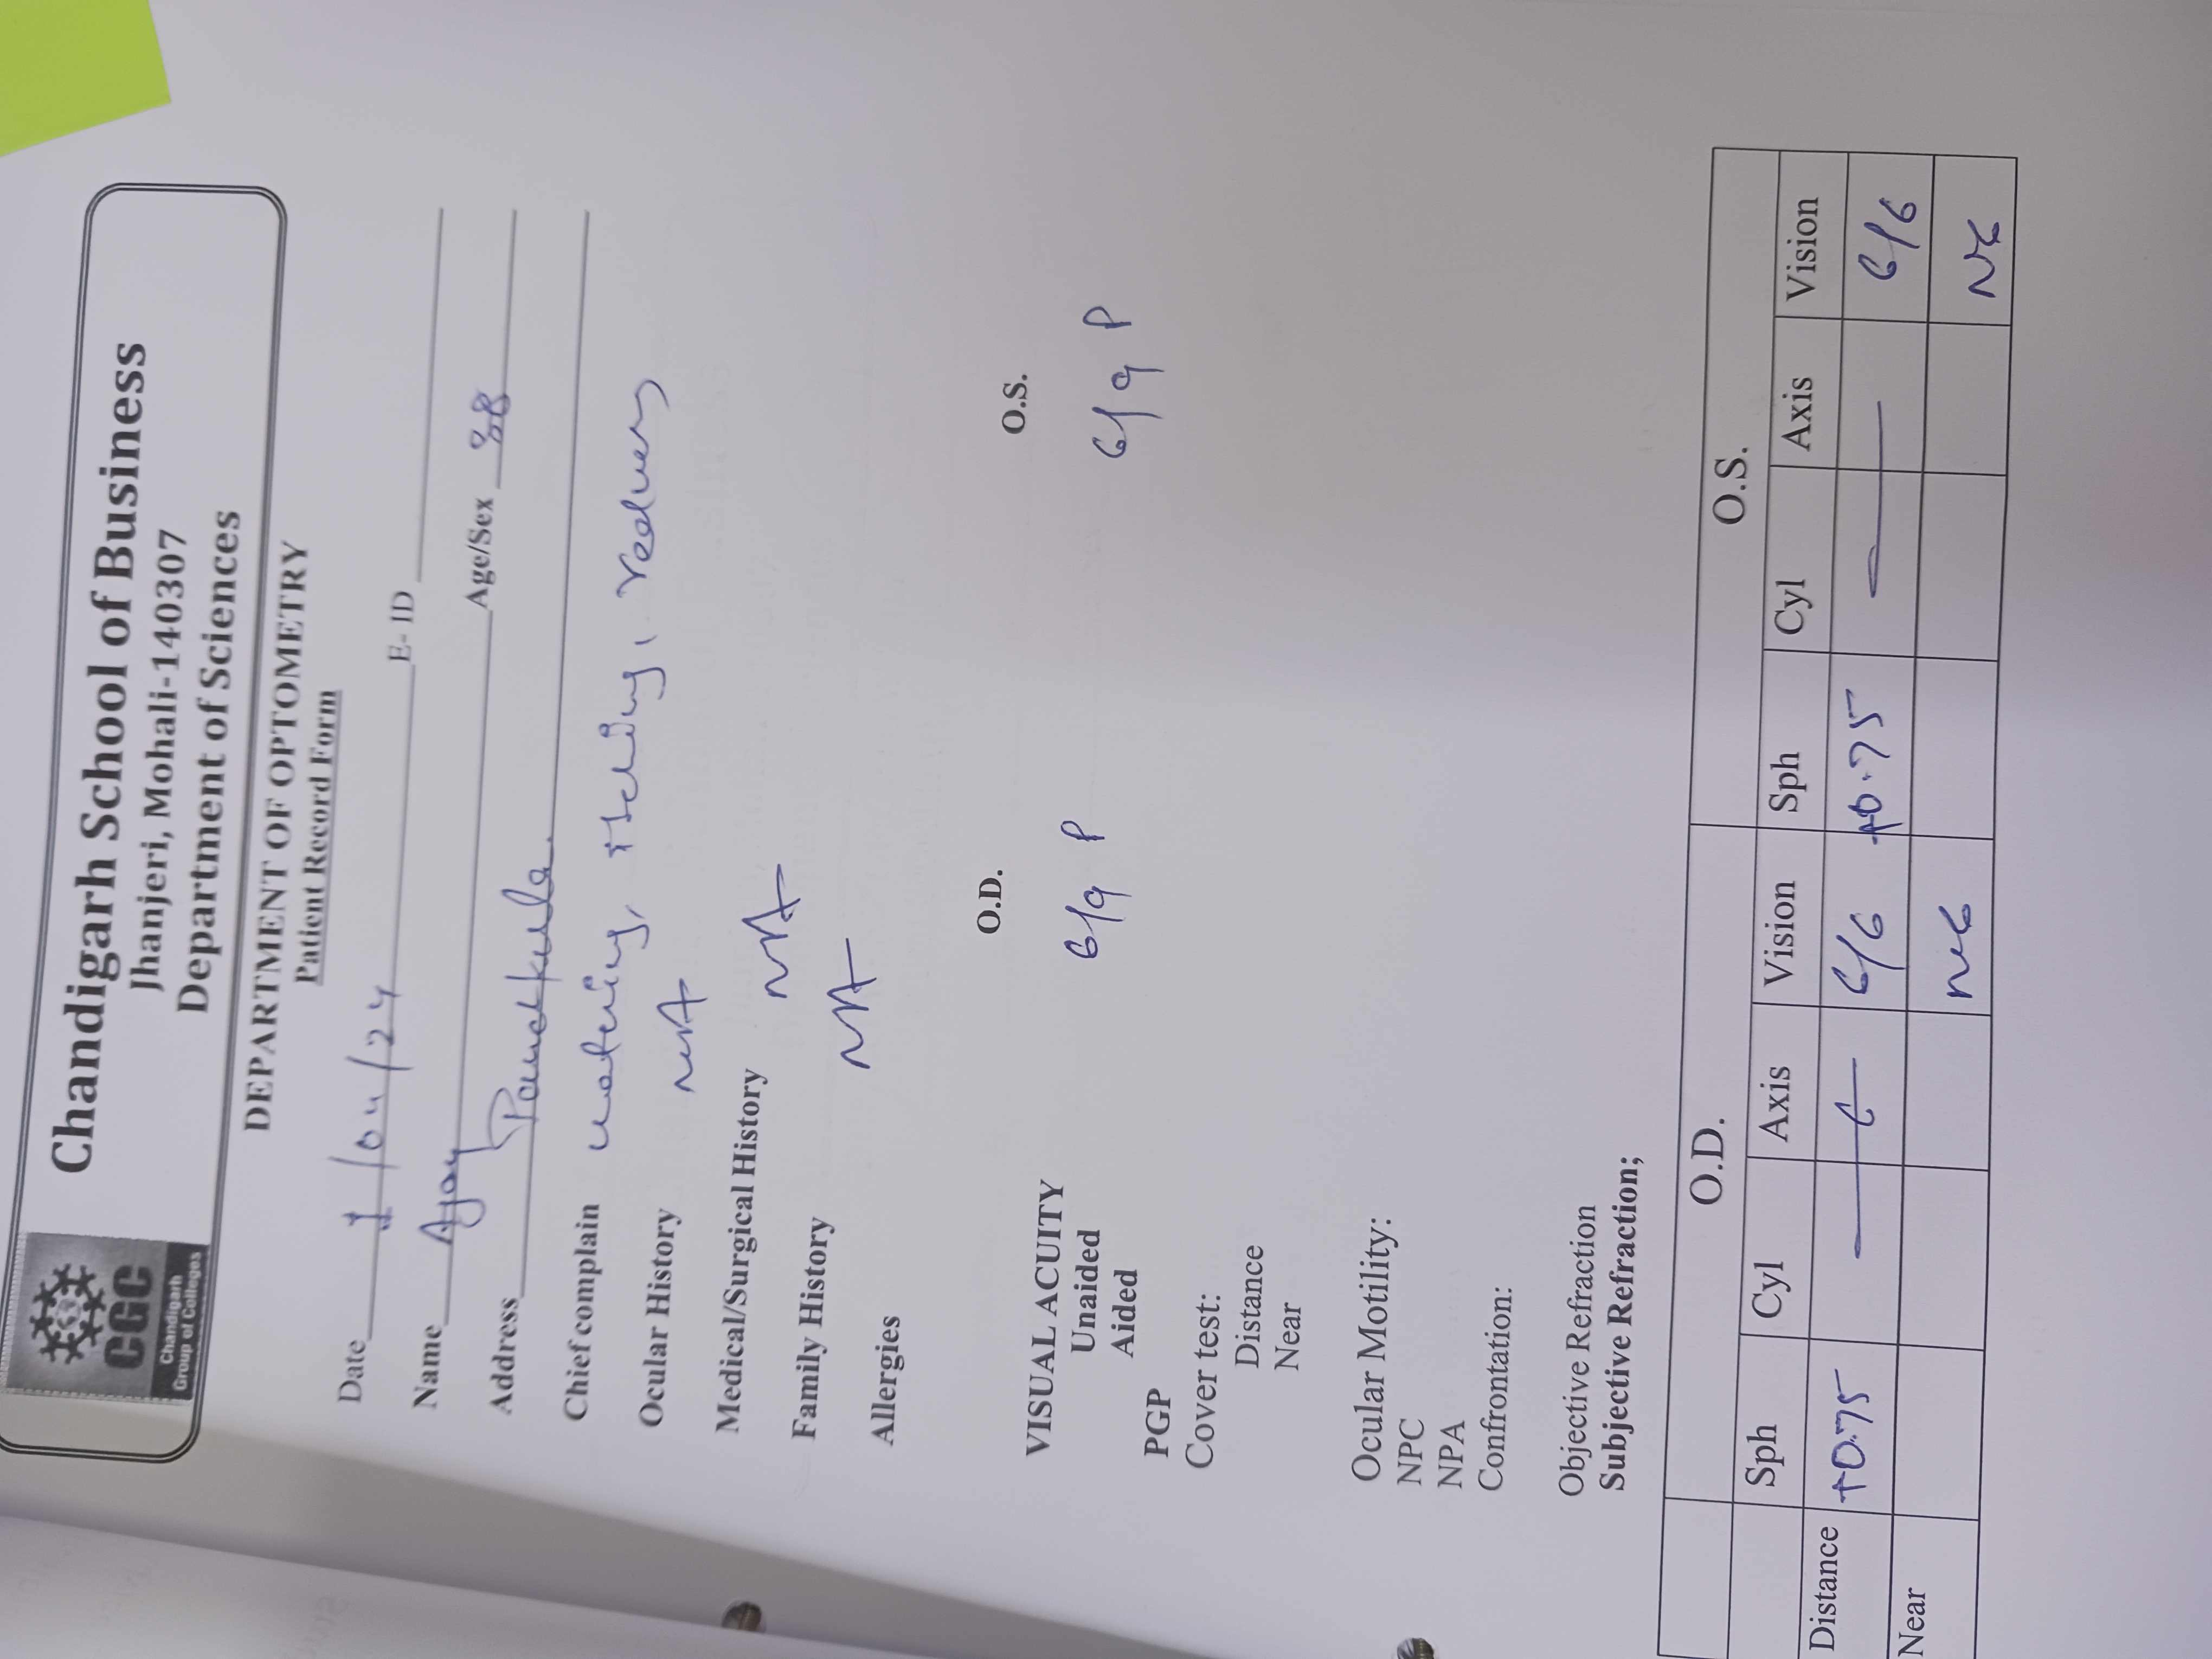 CGC
Chandigarh
Group of Colleges
Chandigarh School of Business
Jhanjeri, Mohali-140307
Department of Sciences
DEPARTMENT OF OPTOMETRY
Patient Record Form
Date 1/04/24 E- ID
Name Ajay Age/Sex 38
Address Panchkula
Chief complain watering, itching, redness
Ocular History NA
Medical/Surgical History NA
Family History NA
Allergies
O.D. O.S.
VISUAL ACUITY
Unaided 6/9 P 6/9 P
Aided
PGP
Cover test:
Distance
Near
Ocular Motility:
NPC
NPA
Confrontation:
Objective Refraction
Subjective Refraction;
O.D. O.S.
Sph Cyl Axis Vision Sph Cyl Axis Vision
Distance +0.75 — 6/6 +0.75 — 6/6
Near N6 N6